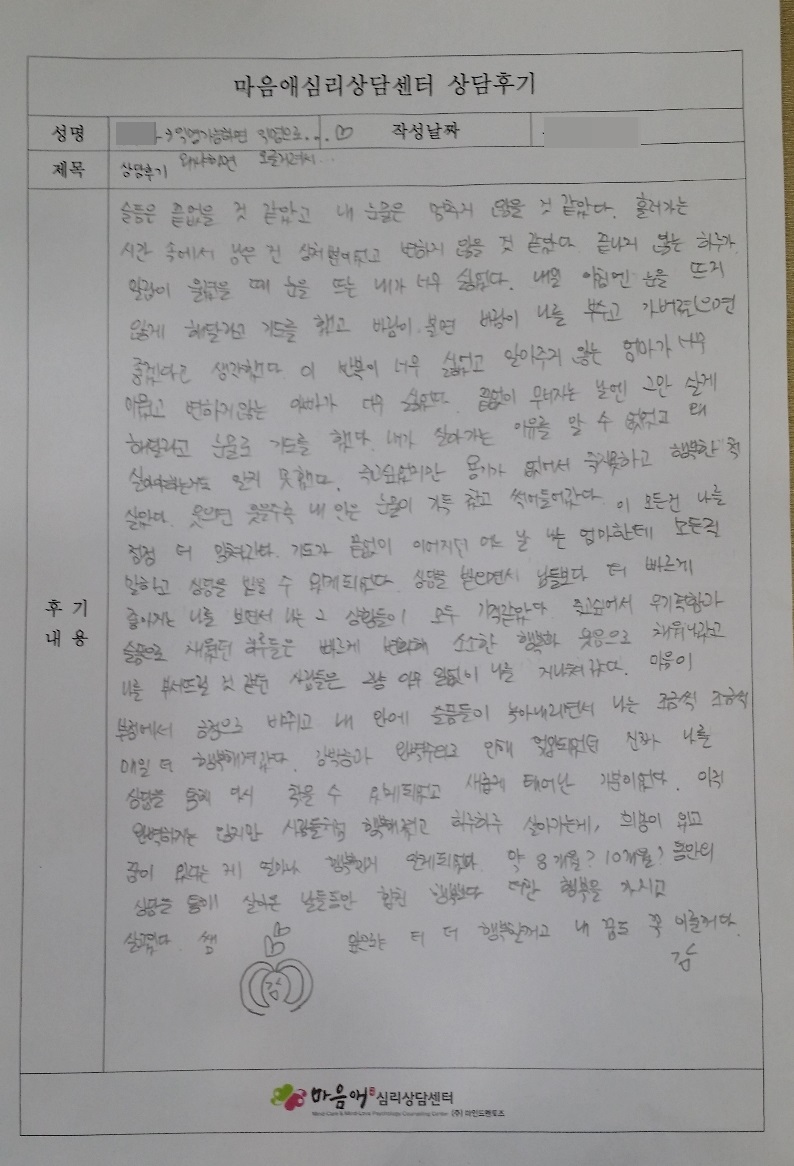 마음애심리상담센터 상담후기
성명 →익명가능하면 익명으로... 작성날짜
제목 상담후기 왜냐하면 오글거려서...
후기
내용
슬픔은 끝없을 것 같았고 내 눈물은 멈추지 않을 것 같았다. 흘러가는
시간 속에서 남은 건 상처뿐이었고 변하지 않을 것 같았다. 끝나지 않는 하루가
알람이 울렸을 때 눈을 뜨는 내가 너무 싫었다. 내일 아침엔 눈을 뜨지
않게 해달라고 기도를 했고 바람이 불면 바람이 나를 부수고 가버렸으면
좋겠다고 생각했다. 이 반복이 너무 싫었고 알아주지 않는 엄마가 너무
미웠고 변하지않는 아빠가 너무 싫었다. 끝없이 무너지는 날엔 그만 살게
해달라고 눈물로 기도를 했다. 내가 살아가는 이유를 알 수 없었고 왜
살아야하는지도 알지 못했다. 죽고싶었지만 용기가 없어서 죽지못하고 행복한 척
살았다. 웃으면 웃을수록 내 안은 눈물이 가득 찼고 썩어들어갔다. 이 모든건 나를
점점 더 망쳐갔다. 기도가 끝없이 이어지던 어느 날 나는 엄마한테 모든걸
말하고 상담을 받을 수 있게되었다. 상담을 받으면서 남들보다 더 빠르게
좋아지는 나를 보면서 나는 그 상황들이 모두 기적같았다. 죽고싶어서 무기력함과
슬픔으로 채웠던 하루들은 빠르게 변화해 소소한 행복과 웃음으로 채워나갔고
나를 부서뜨릴 것 같던 사람들은 그냥 아무 일없이 나를 지나쳐갔다. 마음이
부정에서 긍정으로 바뀌고 내 안에 슬픔들이 녹아내리면서 나는 조금씩 조금씩
매일 더 행복해져갔다. 강박증과 완벽주의로 인해 진짜 나를
상담을 통해 다시 찾을 수 있게되었고 새롭게 태어난 기분이었다. 아직
완벽하지는 않지만 사람들처럼 행복해졌고 하루하루 살아가는게, 희망이 있고
꿈이 있다는 게 얼마나 행복한지 알게되었다. 약 8개월? 10개월? 동안의
상담을 통해 살아온 날들동안 합친 행복보다 더한 행복을 가지고
살고있다. 쌤 앞으로는 더 더 행복할거고 내 꿈도 꼭 이룰거다.
감
감
마음애 심리상담센터
Mind Care & Mind Love Psychology Counseling Center (주) 마인드멘토즈